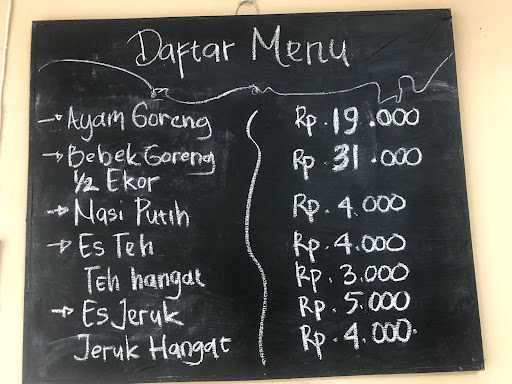 Daftar Menu
→ Ayam Goreng Rp. 19.000
→ Bebek Goreng Rp. 31.000
1/2 Ekor
→ Nasi Putih Rp. 4.000
→ Es Teh Rp. 4.000
Teh hangat Rp. 3.000
→ Es Jeruk Rp. 5.000
Jeruk Hangat Rp. 4.000.